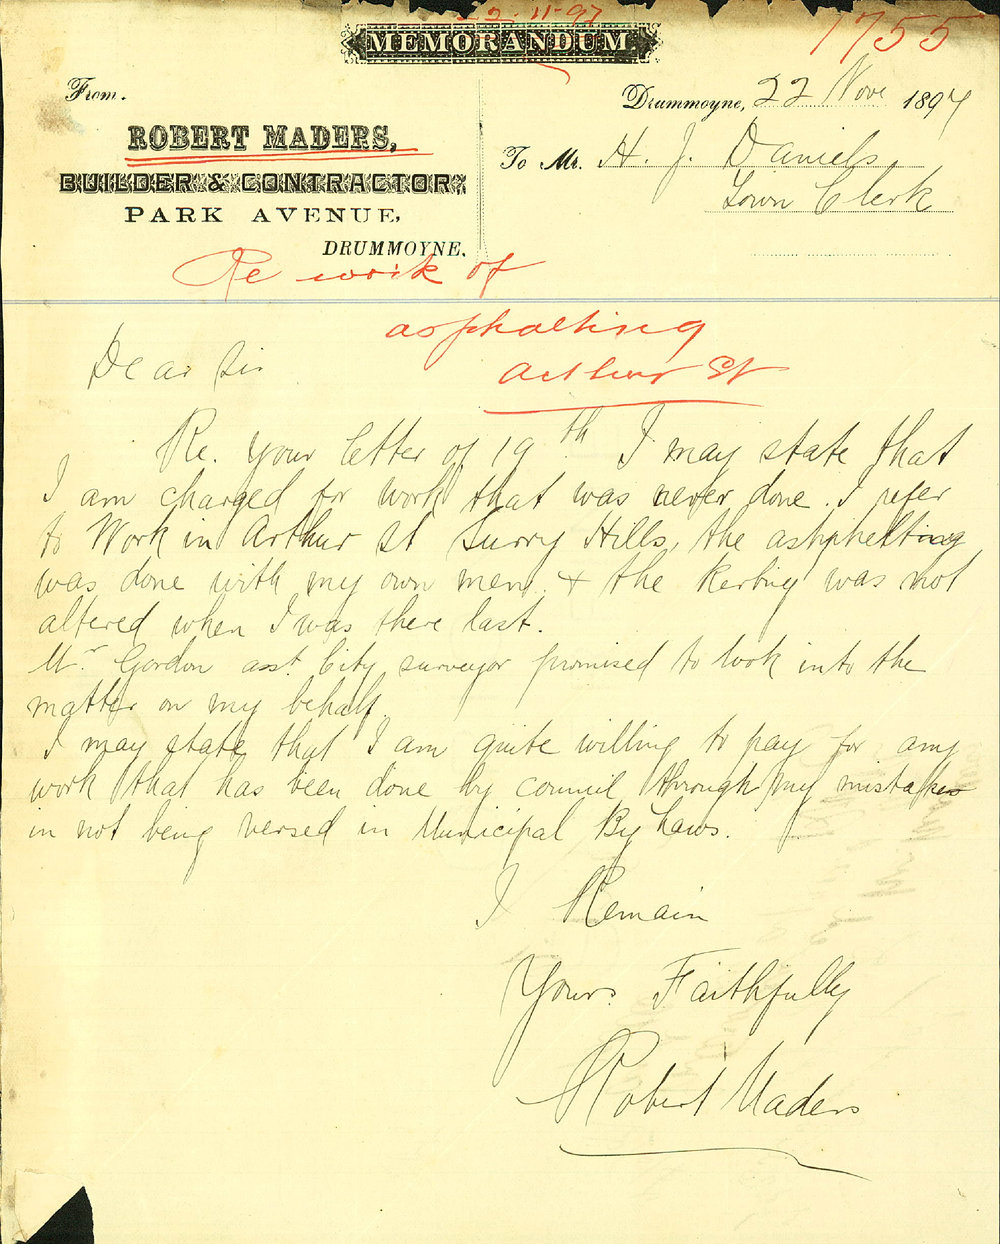 22-11-97
1755
MEMORANDUM
From.
Drummoyne, 22 Nov 1897
ROBERT MADERS,
To Mr. H. J. Daniels,
BUILDER & CONTRACTOR,
Town Clerk
PARK AVENUE,
DRUMMOYNE.
Re work of
asphalting
Arthur St
Dear Sir
Re. your letter of 19th I may state that
I am charged for work that was never done. I refer
to Work in Arthur St Surry Hills, the ashphelting
was done with my own men, & the kerbing was not
altered when I was there last.
Mr Gordon asst. City surveyor promised to look into the
matter on my behalf
I may state that I am quite willing to pay for any
work that has been done by council through my mistakes
in not being versed in Municipal By Laws.
I Remain
Yours Faithfully
Robert Maders